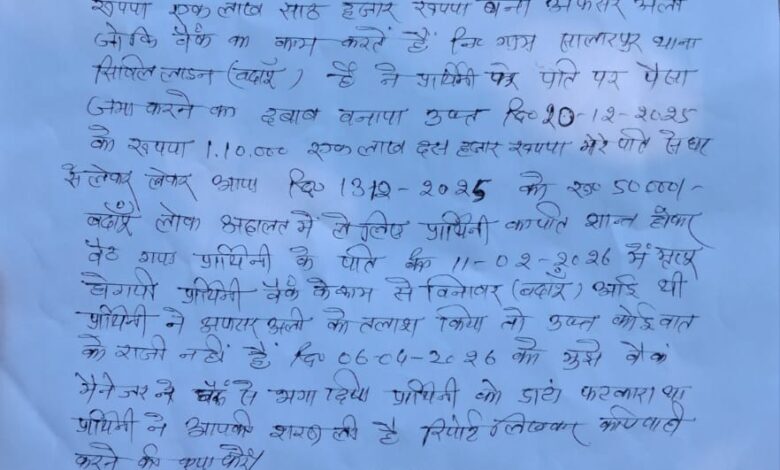 रुपया एक लाख साठ हजार रूपया बना अफसर अली
जोकि बैंक का काम करते हैं नि० ग्राम सालारपुर थाना
सिविल लाइन (बदाँयू) है ने प्रार्थिनी पर पति पर पैसा
जमा करने का दबाव बनाया उक्त दि० 20-12-2025
को रूपया 1.10.000 एक लाख दस हजार रूपया मेरे पति से घर
से लेकर आया दि० 1312-2025 को रू० 50000/-
बदाँयू लोक अदालत में ले लिए प्रार्थिनी का पति शान्त होकर
बैठ गया प्रार्थिनी के पति की 11-02-2026 में मृत्यु
होगयी प्रार्थिनी बैंक के काम से बिनावर (बदाँयू) आई थी
प्रार्थिनी ने अफसर अली को तलाश किया तो उक्त कोई बात
को राजी नहीं है दि० 06-04-2026 को मुझे बैंक
मैनेजर ने बैंक से भगा दिया प्रार्थिनी को डाटा फटकारा था
प्रार्थिनी ने आपकी शरण ली है रिपोर्ट लिखकर कार्यवाही
करने की कृपा करें।